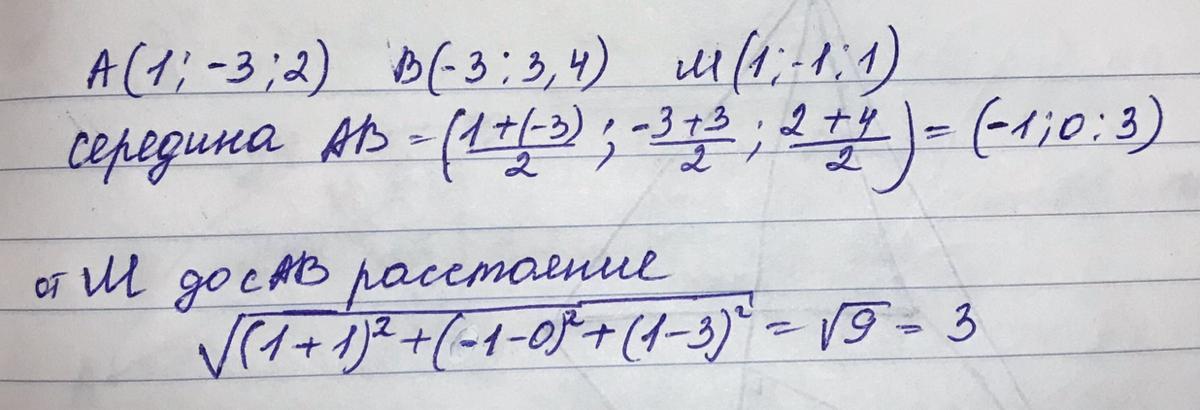 A(1; -3; 2) B(-3; 3, 4) M(1; -1; 1)
середина AB = (1+(-3)/2 ; -3+3/2 ; 2+4/2) = (-1; 0; 3)
от M до сAB расстояние
√((1+1)² + (-1-0)² + (1-3)²) = √9 = 3